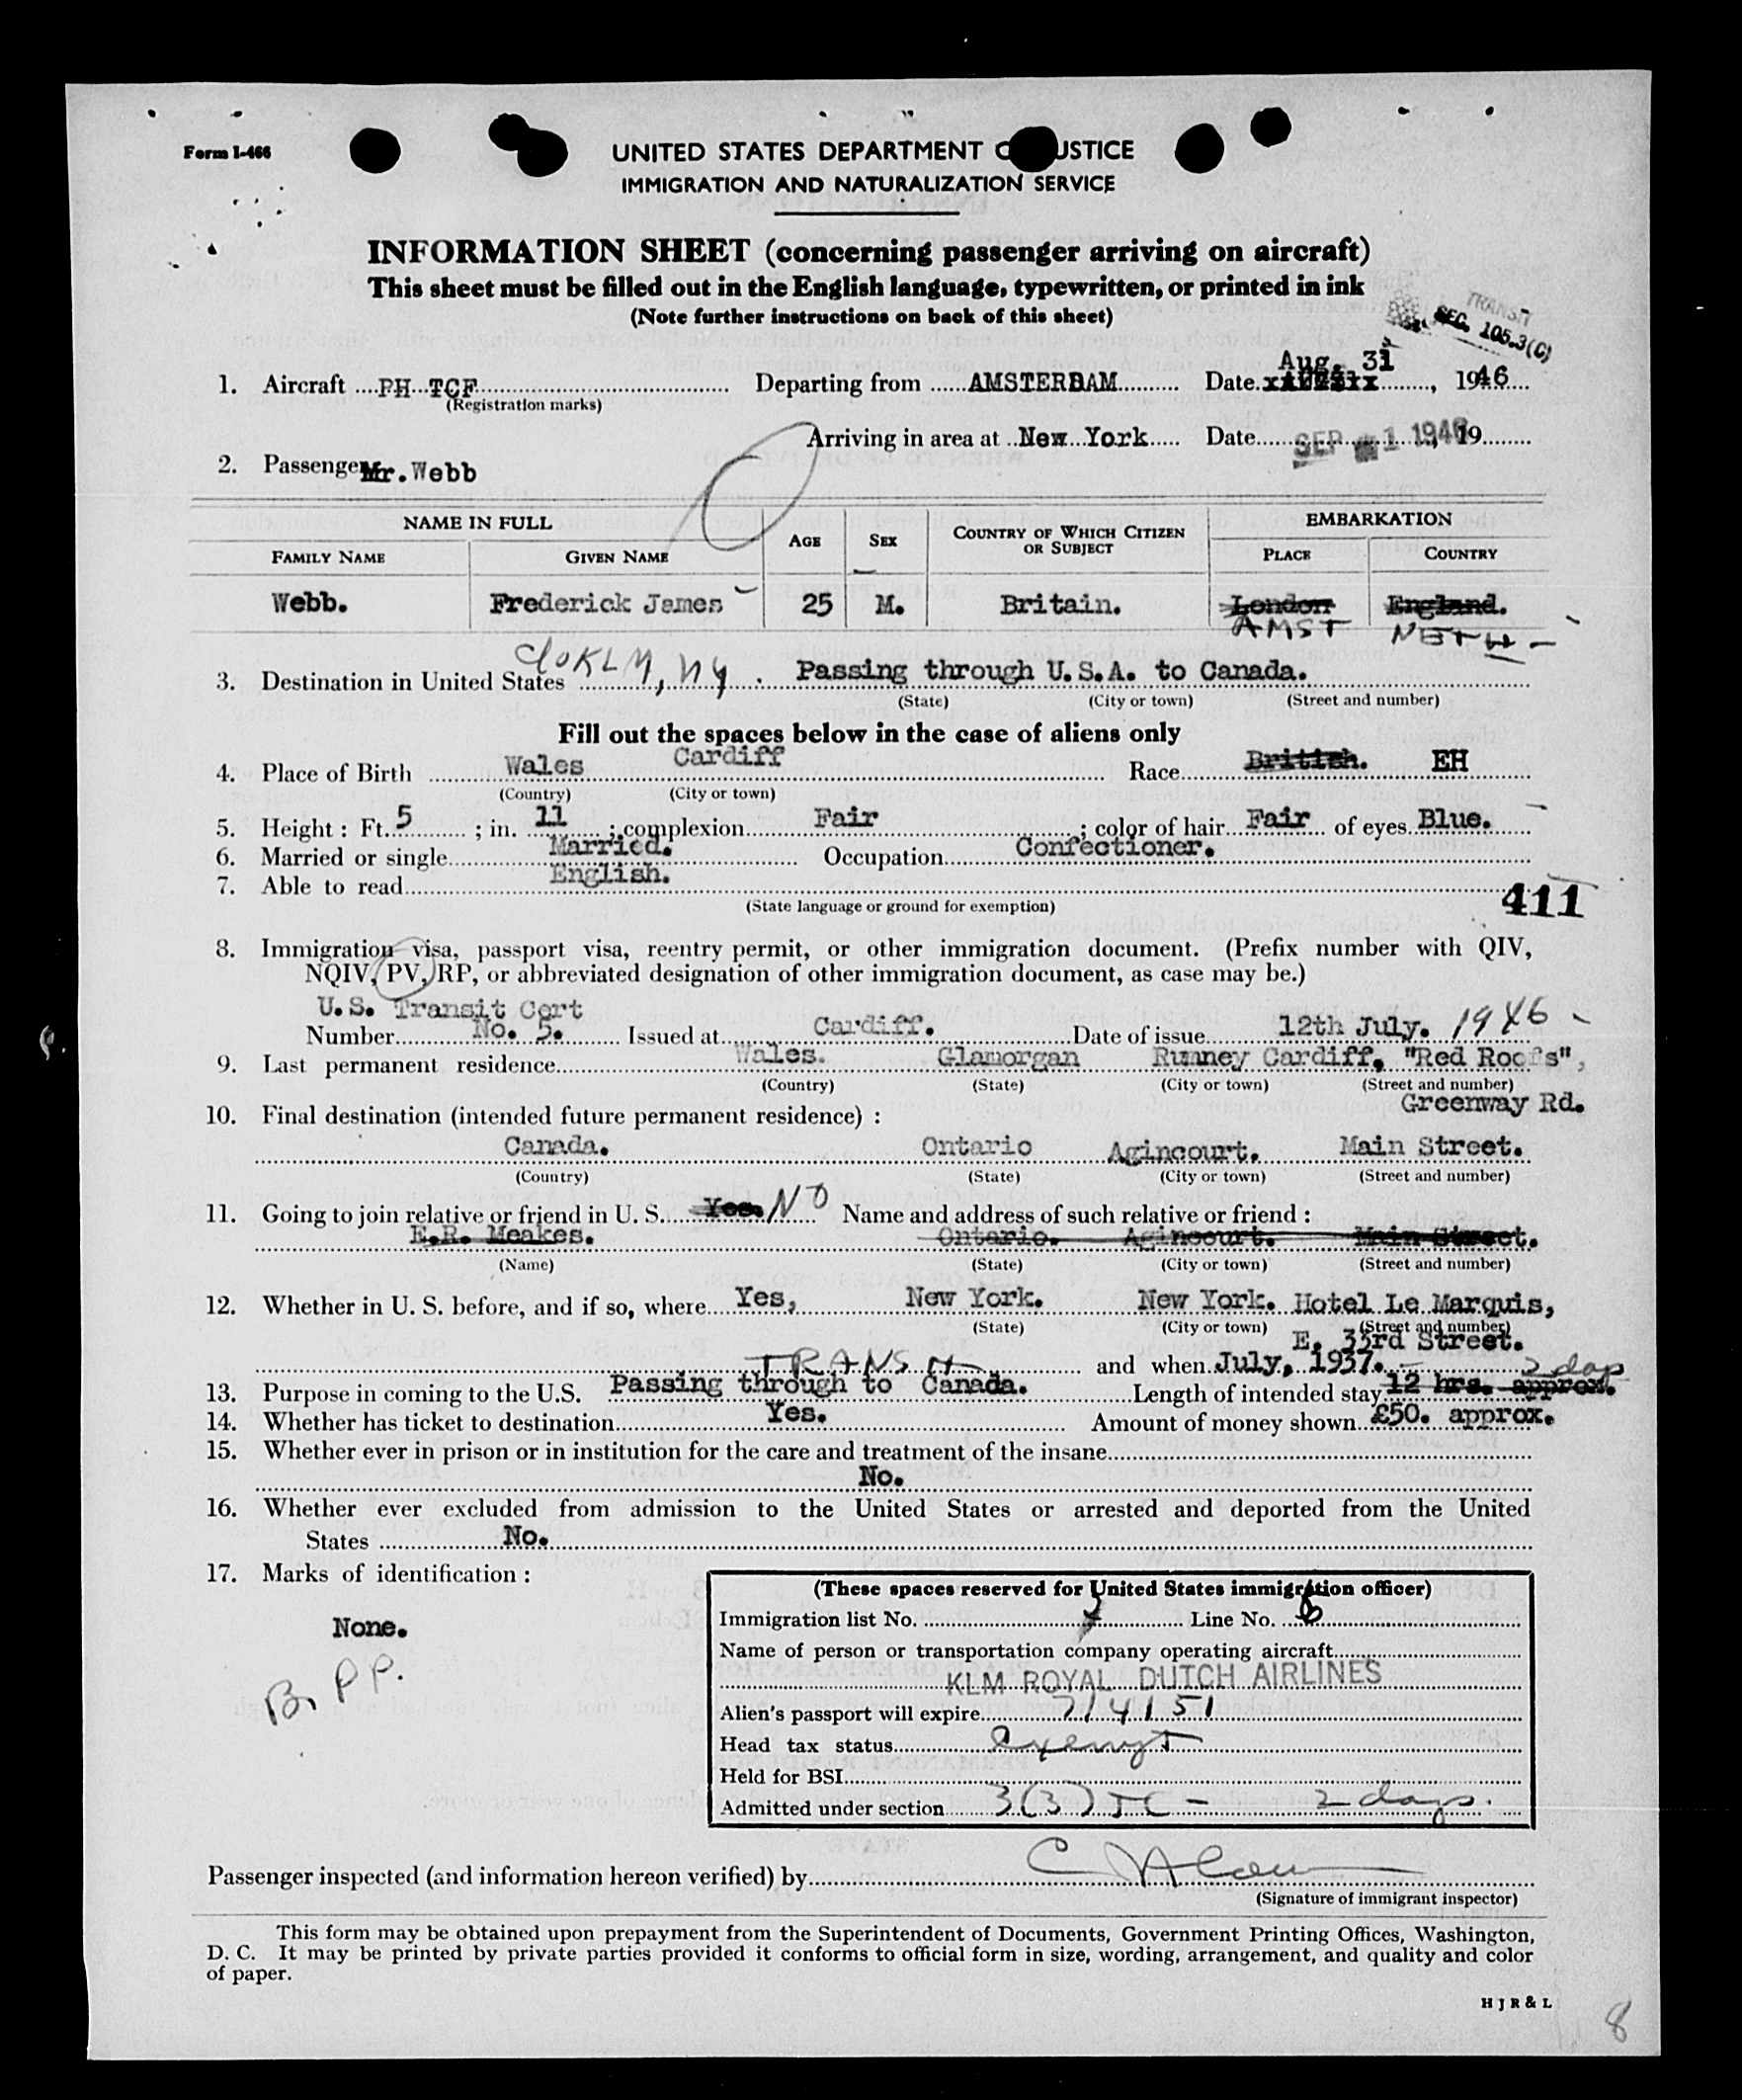 Form I-466
UNITED STATES DEPARTMENT O JUSTICE
IMMIGRATION AND NATURALIZATION SERVICE
INFORMATION SHEET (concerning passenger arriving on aircraft)
This sheet must be filled out in the English language, typewritten, or printed in ink
(Note further instructions on back of this sheet)
TRANSIT
SEC. 105.3(C)
Aug. 31
1. Aircraft PH TCF Departing from AMSTERDAM Date , 1946
(Registration marks)
Arriving in area at New York Date SEP 1 1946 19
2. Passenger Mr. Webb
NAME IN FULL AGE SEX COUNTRY OF WHICH CITIZEN OR SUBJECT EMBARKATION
FAMILY NAME GIVEN NAME PLACE COUNTRY
Webb. Frederick James 25 M. Britain. London England.
AMST NETH -
c/o KLM, NY.
3. Destination in United States Passing through U.S.A. to Canada.
(State) (City or town) (Street and number)
Fill out the spaces below in the case of aliens only
4. Place of Birth Wales Cardiff Race British. EH
(Country) (City or town)
5. Height: Ft. 5 ; in. 11 ; complexion Fair ; color of hair Fair of eyes Blue.
6. Married or single Married. Occupation Confectioner.
7. Able to read English.
(State language or ground for exemption)
411
8. Immigration visa, passport visa, reentry permit, or other immigration document. (Prefix number with QIV,
NQIV, PV, RP, or abbreviated designation of other immigration document, as case may be.)
U.S. Transit Cert
Number No. 5. Issued at Cardiff. Date of issue 12th July. 1946
9. Last permanent residence Wales. Glamorgan Rumney Cardiff, "Red Roofs",
(Country) (State) (City or town) (Street and number)
Greenway Rd.
10. Final destination (intended future permanent residence) :
Canada. Ontario Agincourt. Main Street.
(Country) (State) (City or town) (Street and number)
11. Going to join relative or friend in U. S. Yes. NO Name and address of such relative or friend :
E.R. Meakes. Ontario. Agincourt. Main Street.
(Name) (State) (City or town) (Street and number)
12. Whether in U. S. before, and if so, where Yes, New York. New York. Hotel Le Marquis,
(State) (City or town) (Street and number)
E. 33rd Street.
TRANSIT and when July, 1937.
2 days
13. Purpose in coming to the U.S. Passing through to Canada. Length of intended stay 12 hrs. approx.
14. Whether has ticket to destination Yes. Amount of money shown £50. approx.
15. Whether ever in prison or in institution for the care and treatment of the insane
No.
16. Whether ever excluded from admission to the United States or arrested and deported from the United
States No.
17. Marks of identification :
None.
Br PP.
(These spaces reserved for United States immigration officer)
Immigration list No. Line No. 8
Name of person or transportation company operating aircraft
KLM ROYAL DUTCH AIRLINES
Alien's passport will expire 7/4/51
Head tax status Exempt
Held for BSI
Admitted under section 3(3) TC - 2 days.
Passenger inspected (and information hereon verified) by
(Signature of immigrant inspector)
This form may be obtained upon prepayment from the Superintendent of Documents, Government Printing Offices, Washington,
D. C. It may be printed by private parties provided it conforms to official form in size, wording, arrangement, and quality and color
of paper.
H J R & L
8